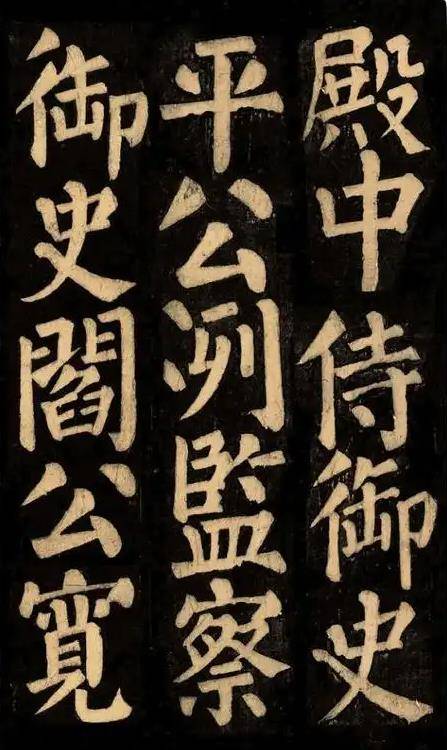 殿中侍御史
平公冽監察
御史閻公寬